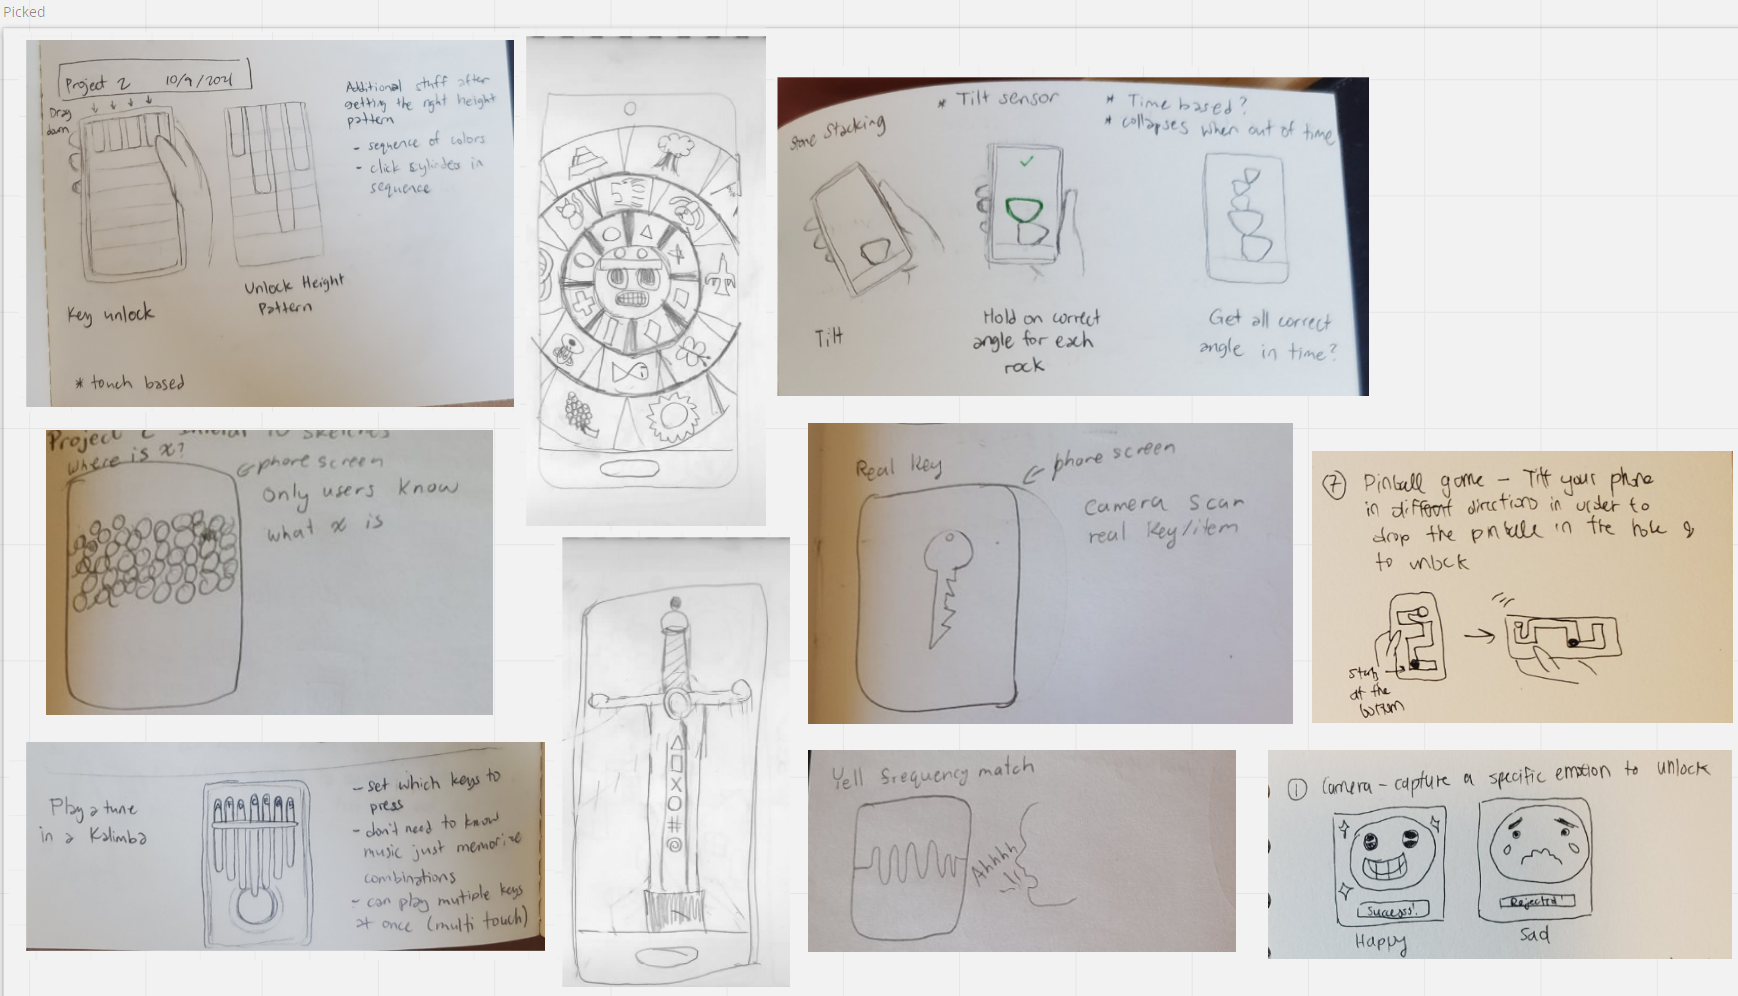 Picked
Project 2 10/9/2021
Drag
down
Additional stuff after
getting the right height
pattern
- sequence of colors
- click cylinder in
sequence
Key unlock
Unlock Height
Pattern
* touch based
Stone Stacking
* Tilt sensor
* Time based?
* collapses when out of time
Tilt
Hold on correct
angle for each
rock
Get all correct
angle in time?
Project 2
sketches
where is x?
phone screen
only users know
what x is
Real Key
phone screen
camera scan
real key/item
7 Pinball game - Tilt your phone
in different directions in order to
drop the pinball in the hole &
to unlock
start
at the
bottom
Play a tune
in a Kalimba
- set which keys to
press
- don't need to know
music just memorize
combinations
- can play multiple keys
at once (multi touch)
△
□
X
O
#
@
Yell frequency match
Ahhhh
1 Camera - capture a specific emotion to unlock
Success!
Rejected!
Happy
Sad